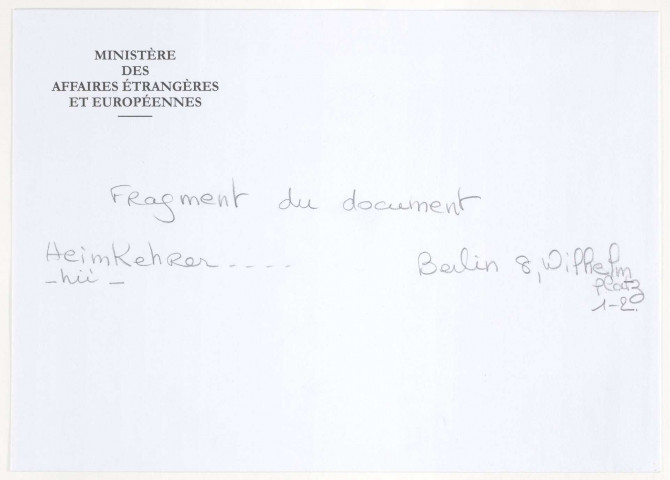 MINISTÈRE
DES
AFFAIRES ÉTRANGÈRES
ET EUROPÉENNES
Fragment du document
HeimKehrer ---- Berlin 8, Wilhelm
platz
1-2.